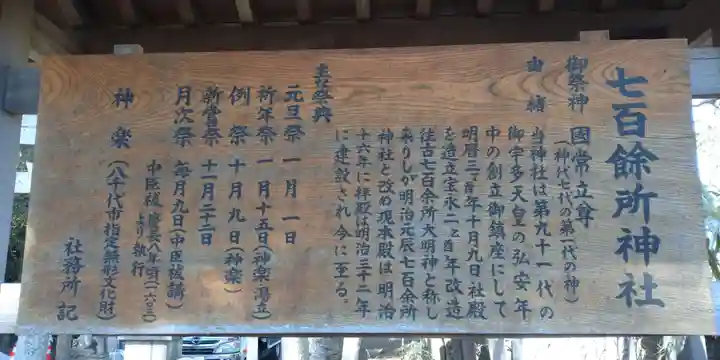 七百餘所神社
御祭神 國常立尊
(神代七代の第一代の神)
由緒 当神社は第九十一代の
御宇多天皇の弘安年
中の創立御鎮座にして
明暦三丁酉年十月九日社殿
を造立宝永二乙酉年改造
往古七百余所大明神と称し
来りしが明治元辰七百余所
神社と改め現本殿は明治
十六年に拝殿は明治三十二年
に建設され今に至る。
主な祭典
元旦祭 一月一日
祈年祭 一月十五日(神楽湯立)
例祭 十月九日(神楽)
新嘗祭 十一月二十三日
月次祭 毎月九日(中臣祓講)
中臣祓 慶長八年頃(一六〇三)
より執行
神楽 (八千代市指定無形文化財)
社務所記